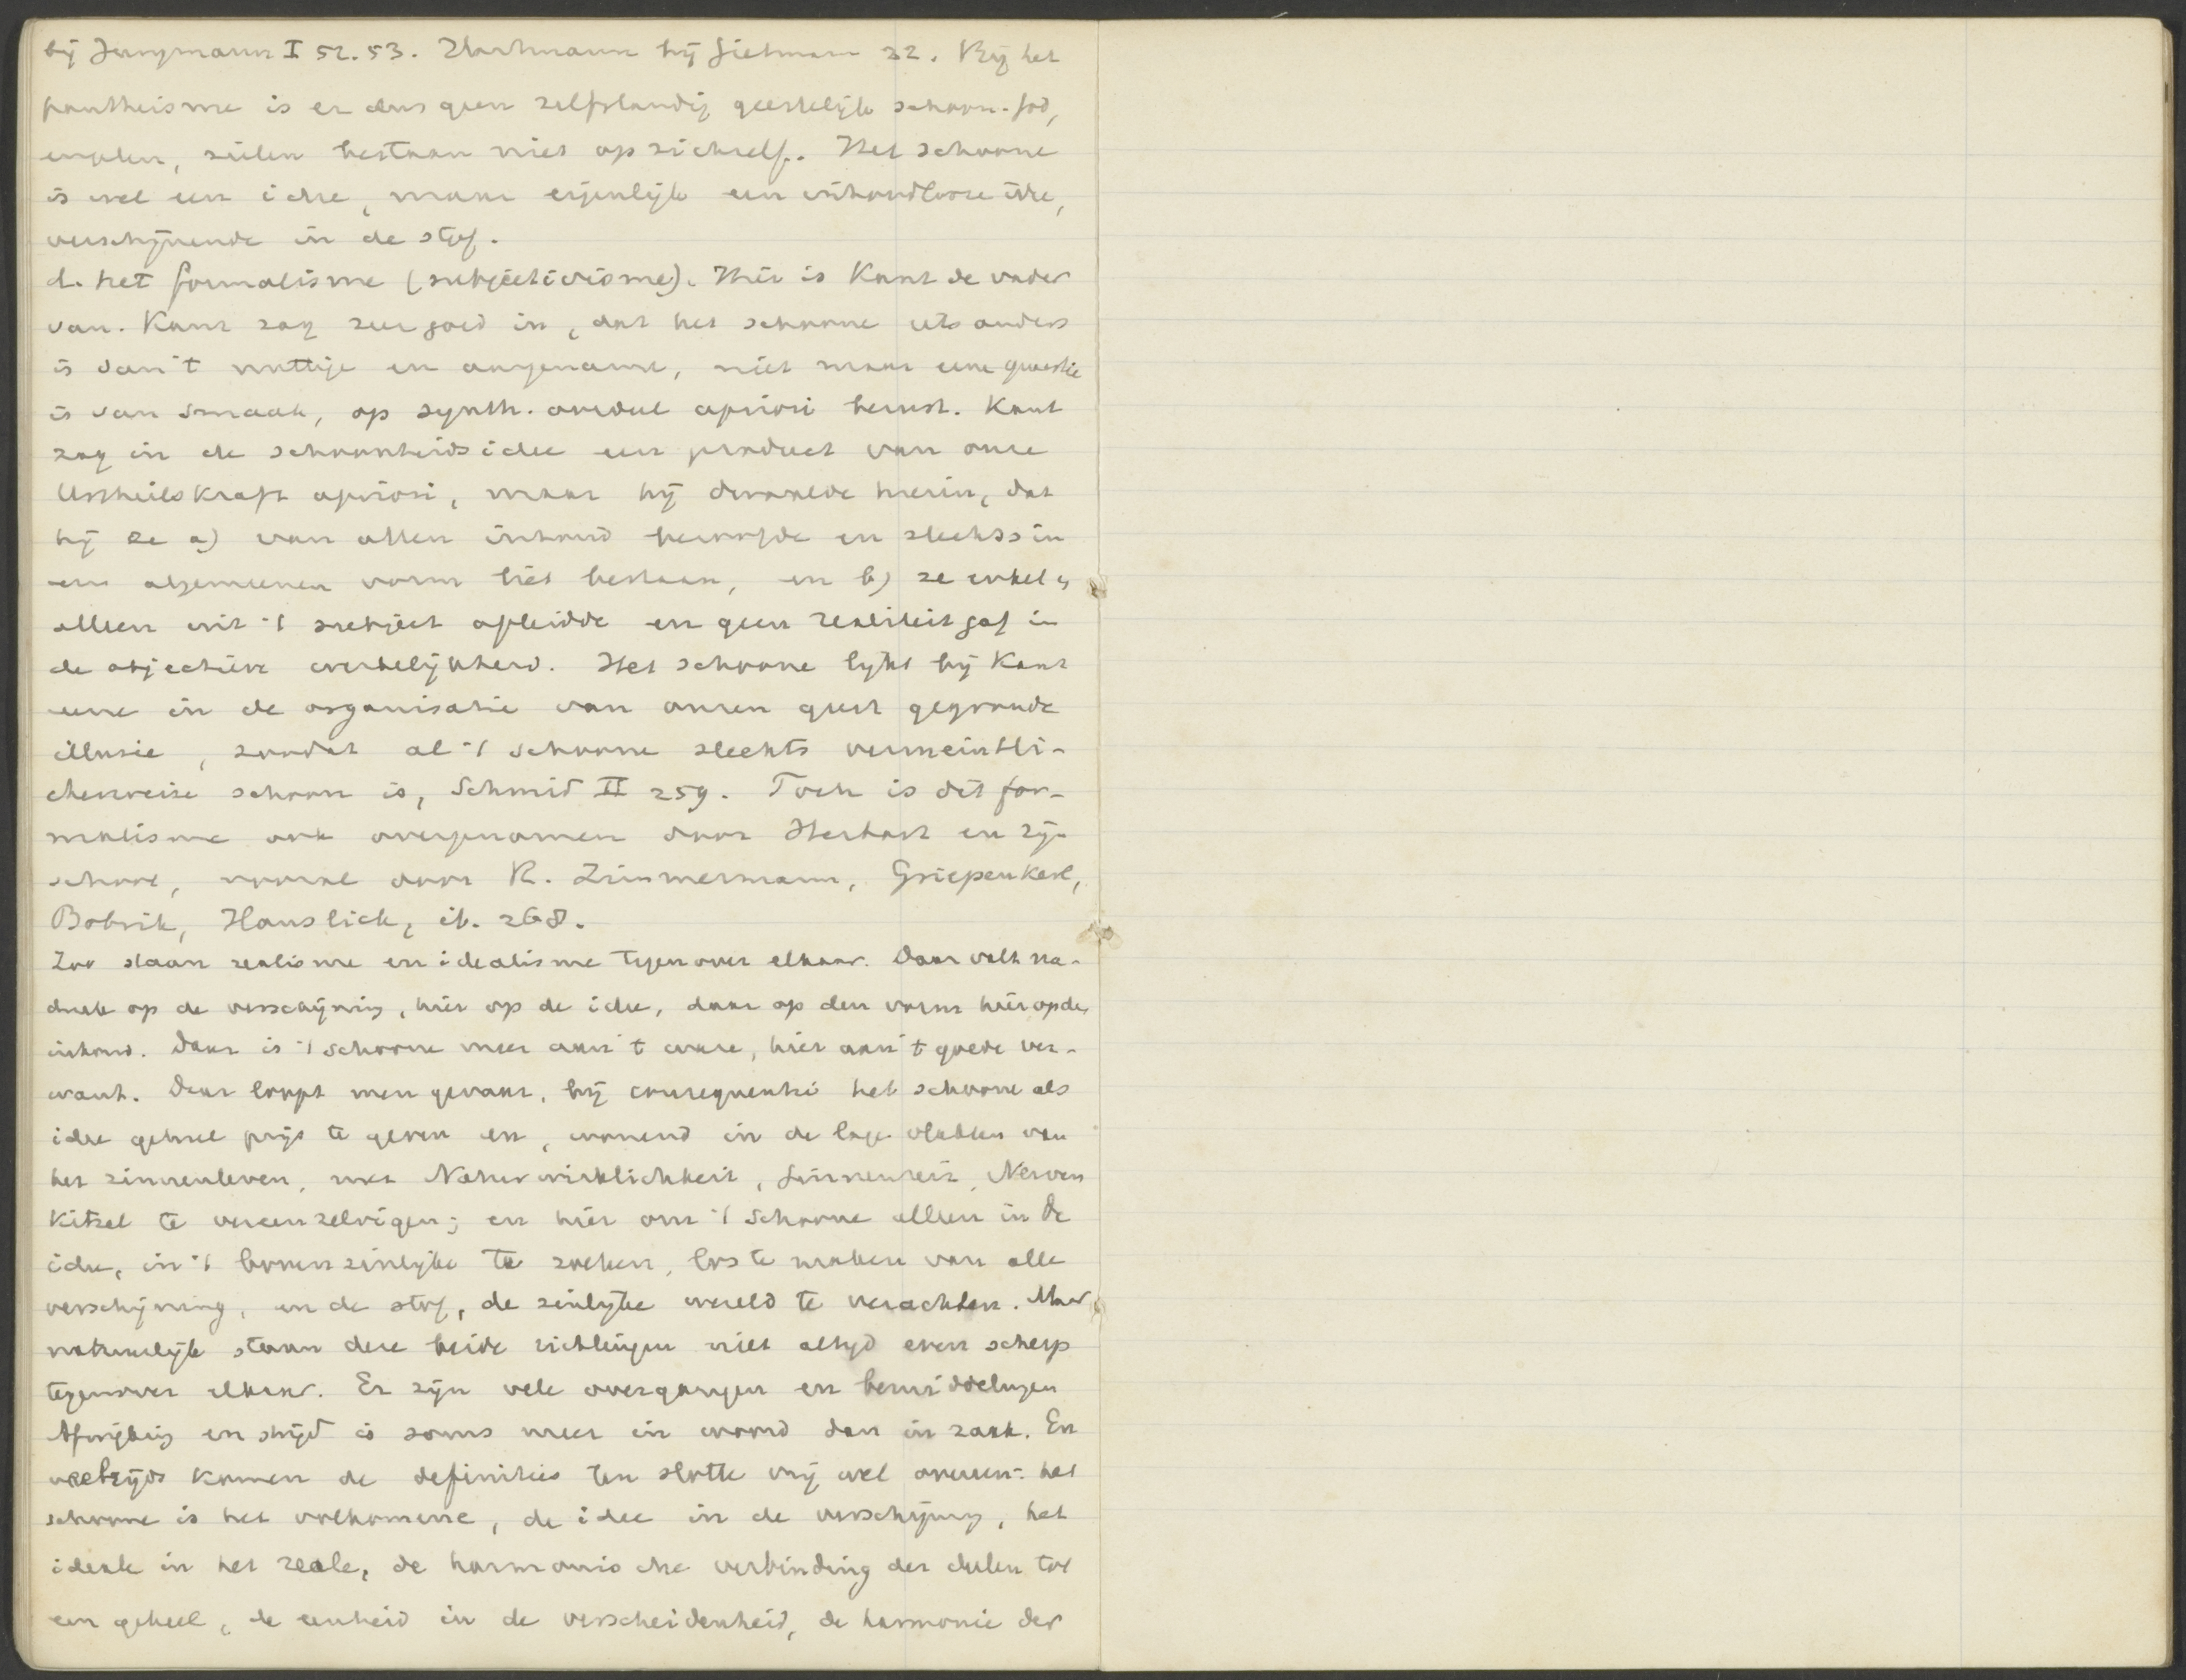 bij Jungmann I 52.53. Hartmann bij Gietmann 32. Bij het
pantheisme is er dus geen zelfstandig geestelijk schoon. God,
engelen, zielen bestaan niet op zichzelf. Het schoone
is wel een idee, maar eigenlijk een inhoudlooze idee,
verschijnende in de stof.
d. het formalisme (subjectivisme). Hier is Kant de vader
van. Kant zag zeer goed in, dat het schoone iets anders
is dan 't nuttige en aangename, niet maar eene quaestie
is van smaak, op synth. oordeel apriori berust. Kant
zag in de schoonheidsidee een product van onze
Urtheilskraft apriori, maar hij dwaalde hierin, dat
hij ze a) van allen inhoud beroofde en slechts in
een algemeenen vorm liet bestaan, en b) ze enkel en
alleen uit 't subject afleidde en geen realiteit gaf in
de objectieve werkelijkheid. Het schoone lijkt bij Kant
eene in de organisatie van onzen geest gegronde
illusie, zoodat al 't schoone slechts vermeintli-
cherweise schoon is, Schmid II 259. Toch is dit for-
malisme ook overgenomen door Herbart en zijn
school, vooral door R. Zimmermann, Griepenkerl,
Bobrik, Hanslick, ib. 268.
Zoo staan realisme en idealisme tegenover elkaar. Daar valt na-
druk op de verschijning, hier op de idee, daar op den vorm hier op den
inhoud. Daar is 't schoone meer aan 't ware, hier aan 't goede ver-
want. Daar loopt men gevaar, bij consequentie het schoone als
idee geheel prijs te geven en, wonend in de lage vlakten van
het zinnenleven, met Naturwirklichkeit, Sinnenreiz, Nerven
Kitzel te vereenzelvigen; en hier om 't schoone alleen in de
idee, in 't bovenzinlijke te zoeken, los te maken van alle
verschijning, en de stof, de zinlijke wereld te verachten. Maar
natuurlijk staan deze beide richtingen niet altijd even scherp
tegenover elkaar. Er zijn vele overgangen en bemiddelingen
Afwijking en strijd is soms meer in woord dan in zaak. En
veeltijds komen de definities ten slotte vrij wel overeen: het
schoone is het volkomene, de idee in de verschijning, het
ideale in het reale, de harmonische verbinding der deelen tot
een geheel, de eenheid in de verscheidenheid, de harmonie der